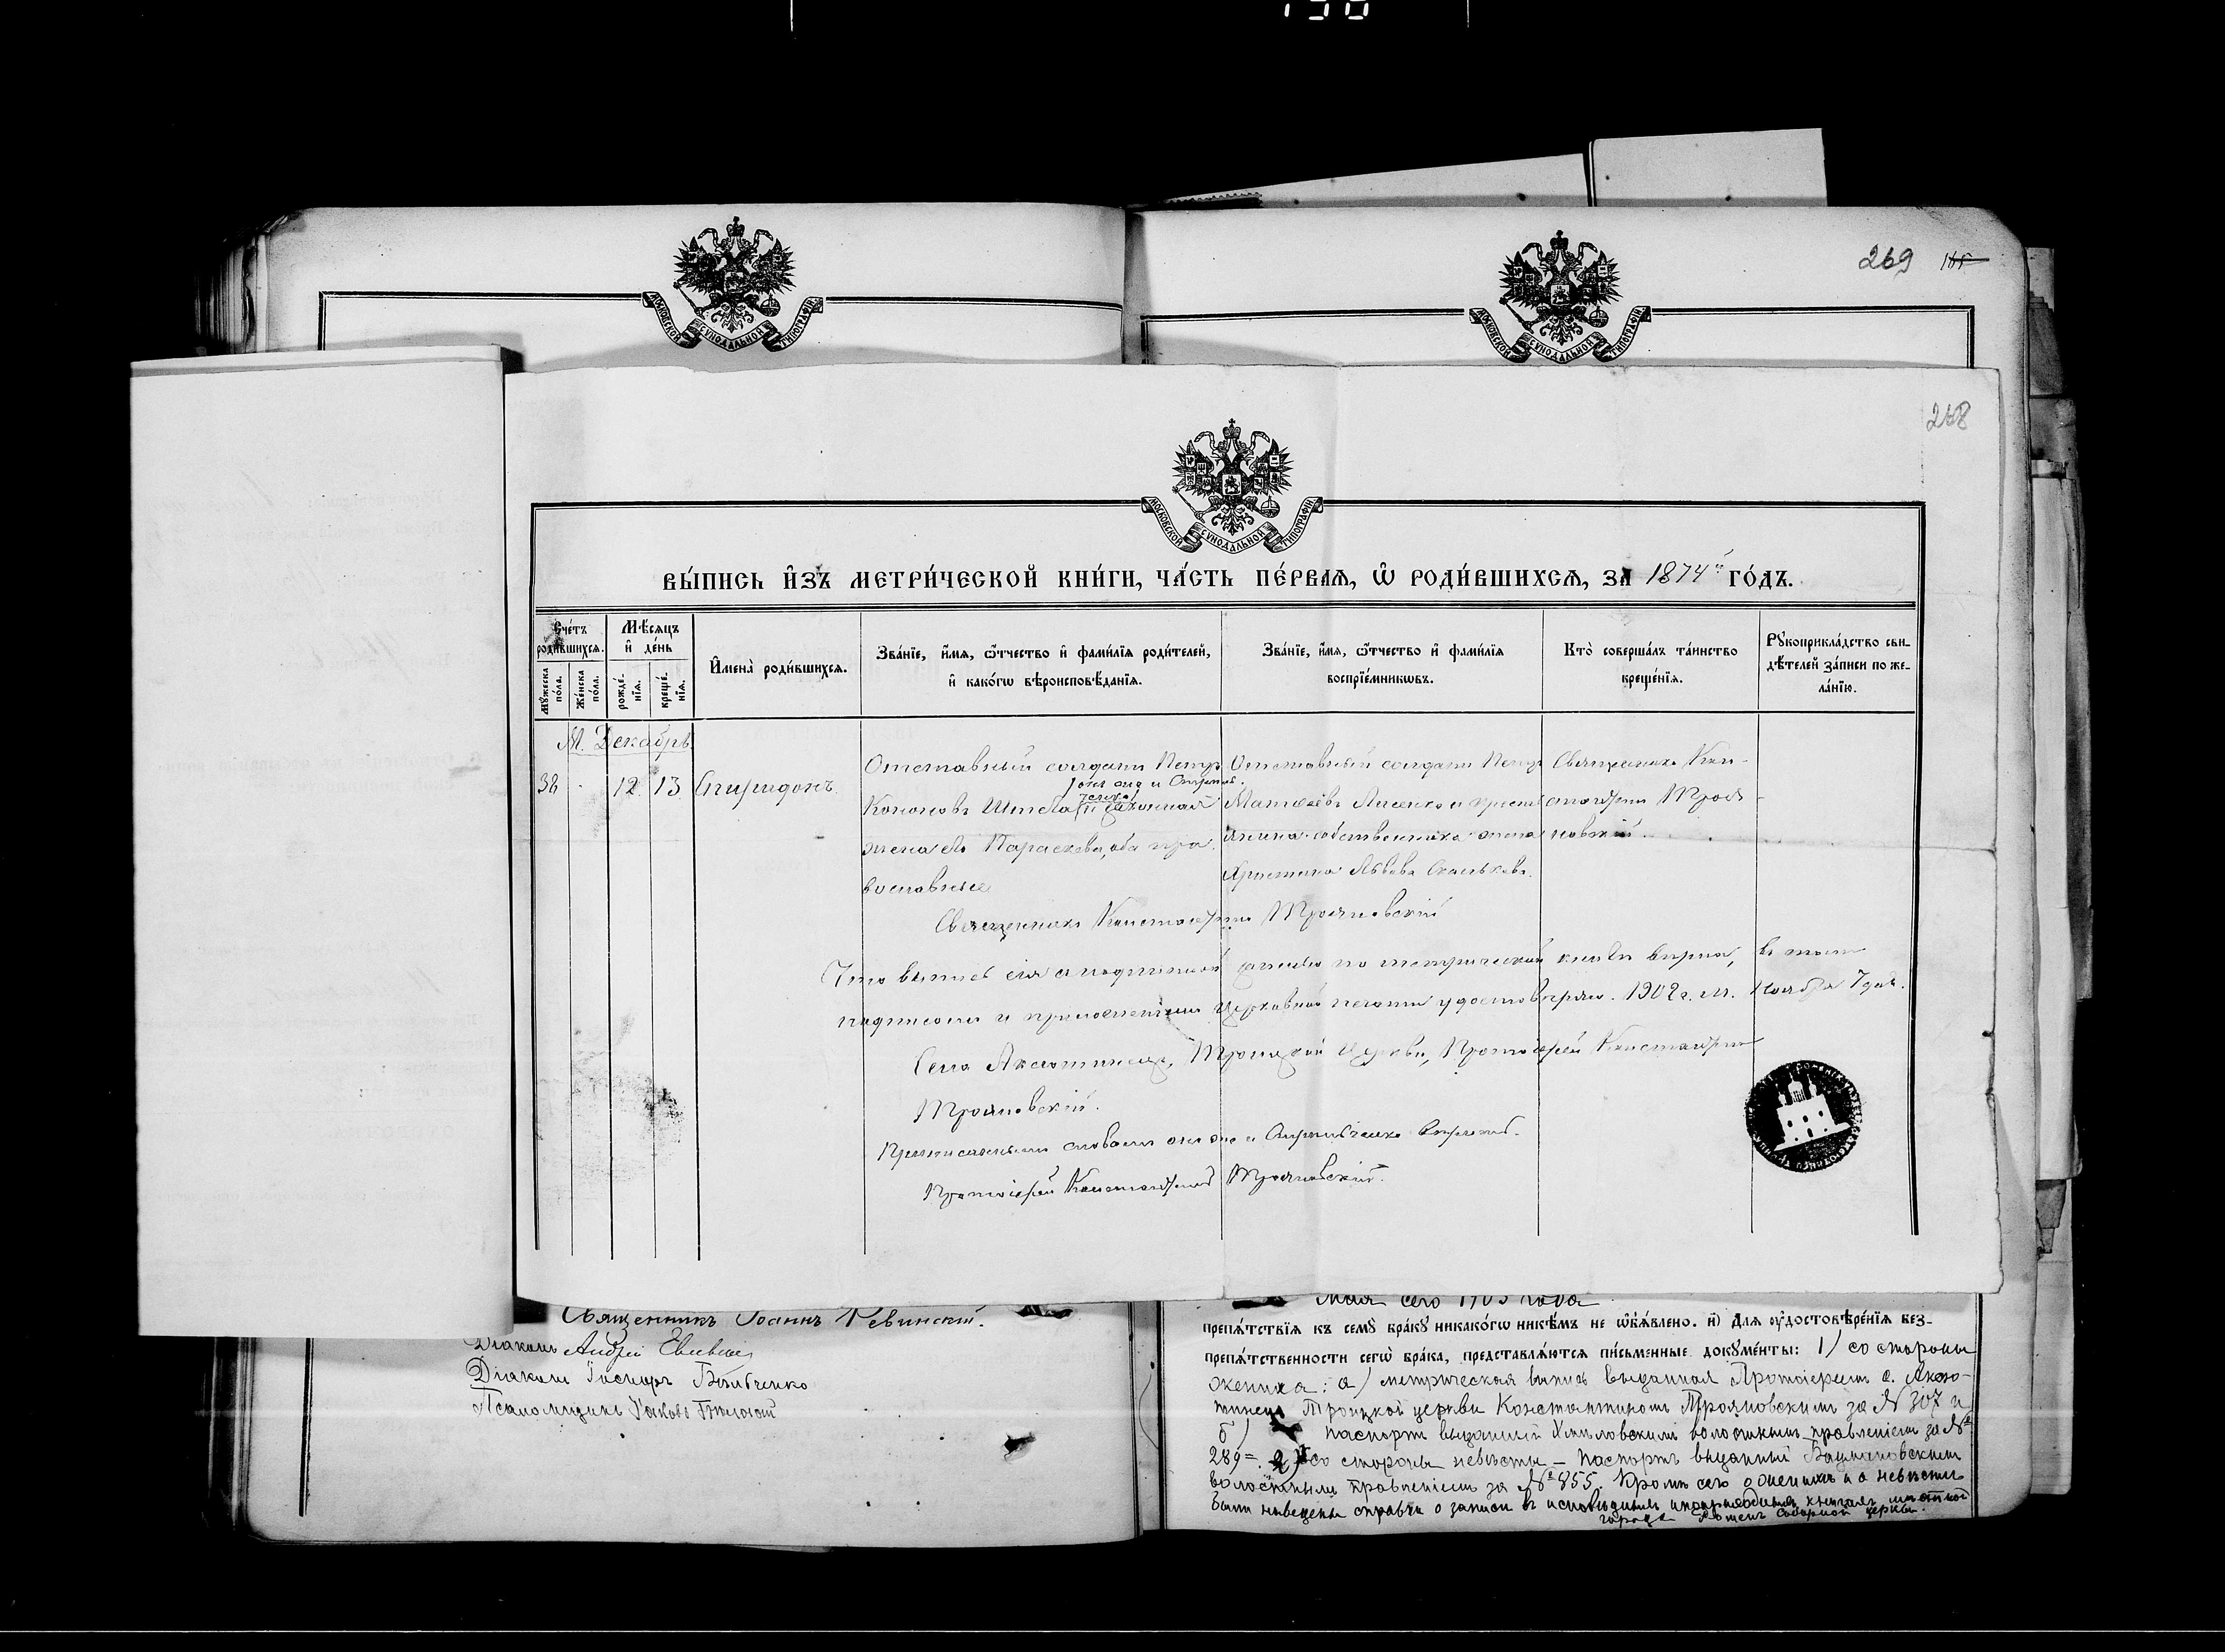 269 165
МОСКОВСКОЙ СѴНОДАЛЬНОЙ ТИПОГРАФІИ
МОСКОВСКОЙ СѴНОДАЛЬНОЙ ТИПОГРАФІИ
268
МОСКОВСКОЙ СѴНОДАЛЬНОЙ ТИПОГРАФІИ
ВЫ́ПИСЬ И҆ЗЪ МЕТРИ́ЧЕСКОЙ КНИ́ГИ, ЧА́СТЬ ПЕ́РВАѦ, Ѡ҆ РОДИ́ВШИХСѦ, ЗА 1874й ГО́ДЪ.
Сче́тъ роди́вшихсѧ.
Мꙋ́жеска по́ла.
Же́нска по́ла.
Мѣ́сѧцъ и҆ де́нь
рожде́нїѧ.
креще́нїѧ.
И҆мена̀ роди́вшихсѧ.
Зва́нїе, и҆́мѧ, ѻ҆́тчество и҆ фами́лїѧ роди́телей, и҆ како́гѡ вѣроисповѣ́данїѧ.
Зва́нїе, и҆́мѧ, ѻ҆́тчество и҆ фами́лїѧ воспрїе́мникѡвъ.
Кто̀ соверша́лъ та́инство креще́нїѧ.
Рꙋкоприкла́дство сви-дѣ́телей за́писи по же-ла́нїю.
М. Декабрь
38 - 12 13 Спиридонъ
Отставный солдатъ Петръ
Кононовъ законная
жена его Параскева, оба пра-
вославные
Отставный солдатъ Петръ
Матвѣевъ Лисенко и кресть
янина-собственника жена
Христина Львова
Священникъ Кон-
стантинъ Троя-
новскій.
Священникъ Константинъ Трояновскій
Что выпись сія съ подлинной записью по метрической книгѣ вѣрна, въ томъ
подписомъ и приложеніемъ церковной печати удостовѣряю. 1902 г. м. Ноября 7 дня.
Села Аксютинецъ, Троицкой церкви, Протоіерей Константинъ
Трояновскій.
Приписаннымъ словамъ онъ же и вѣрить.
Протоіерей Константинъ Трояновскій.
Священникъ Іоаннъ Левинскій.
Діаконъ Андрей
Діаконъ
Псаломщикъ Яковъ
Мая сего 1903 года
препѧ́тствїѧ къ семꙋ̀ бра́кꙋ никако́гѡ никѣ́мъ не ѡ҆б̾ѧ́влено. и҃) Длѧ ᲂу҆достовѣре́нїѧ без-
препѧ́тственности сегѡ̀ бра́ка, представлѧ́ютсѧ пи́сьменные докꙋме́нты: 1) со стороны
жениха: а) метрическая выпись выданная Протоіереемъ с. Аксю-
тинецъ Троицкой церкви Константиномъ Трояновскимъ за № 307 и
б) паспортъ выданный волостнымъ правленіемъ за №
289= 2) со стороны невѣсты — паспортъ выданный
волостнымъ правленіемъ за № 855. Кромѣ сего о женихѣ и о невѣстѣ
были наведены справки о записи въ исповѣдныхъ и приходскихъ книгахъ мѣстной
города соборной церкви.